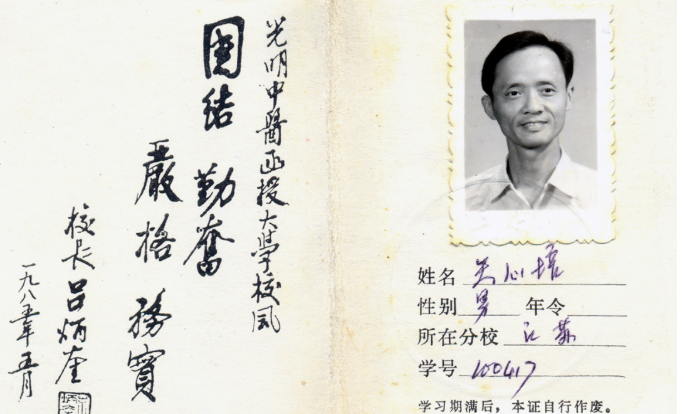 光明中醫函授大學校风
團结 勤奮
嚴格 務實
校长 吕炳奎
一九八五年五月
姓名 吴心培
性别 男 年令
所在分校 江苏
学号 100417
学习期满后，本证自行作废。